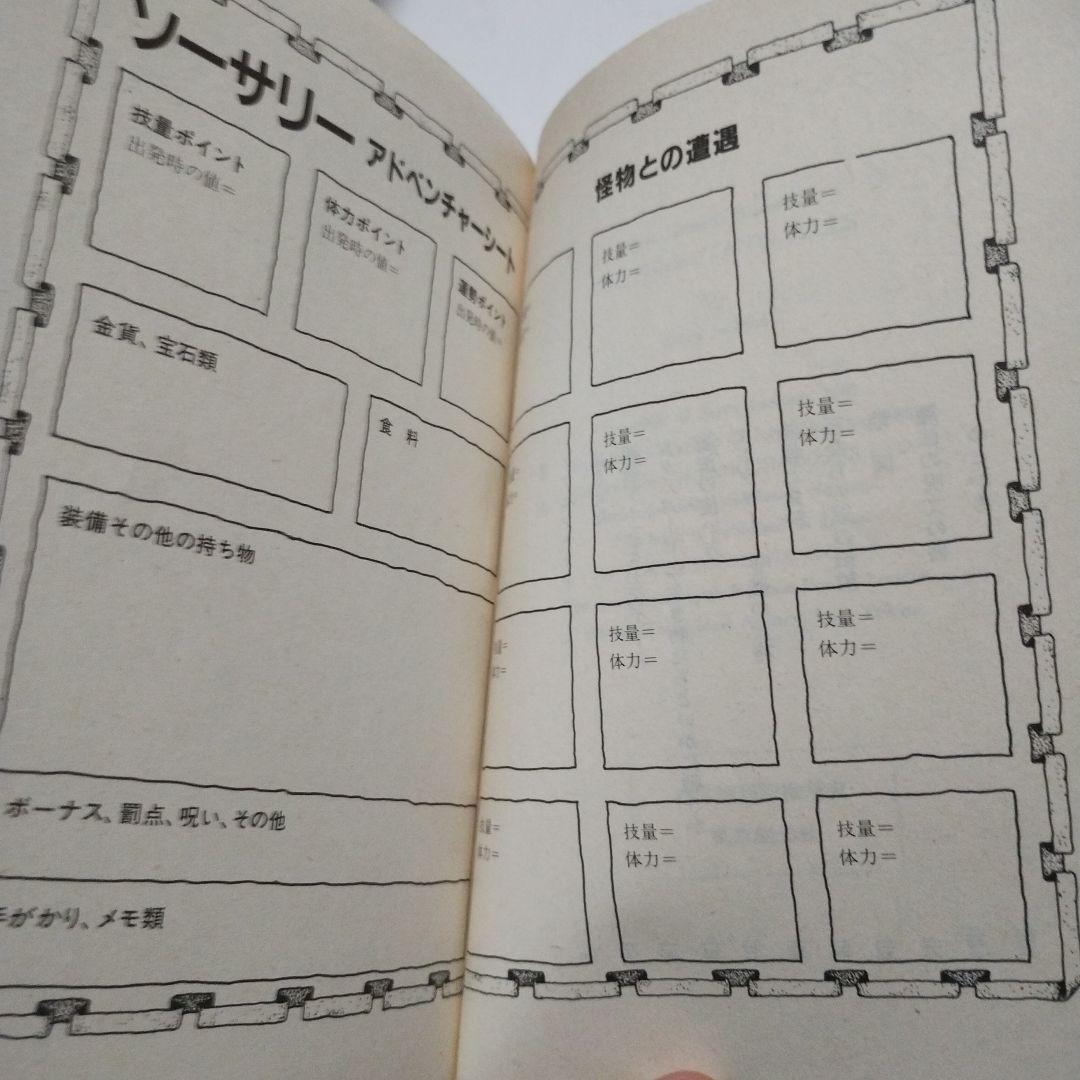 ソーサリー アドベンチャーシート
技量ポイント
出発時の値=
体力ポイント
出発時の値=
運勢ポイント
出発時の値=
金貨、宝石類
食料
装備その他の持ち物
ボーナス、罰点、呪い、その他
手がかり、メモ類
怪物との遭遇
技量=
体力=
技量=
体力=
技量=
体力=
技量=
体力=
技量=
体力=
技量=
体力=
技量=
体力=
技量=
体力=
技量=
体力=
技量=
体力=